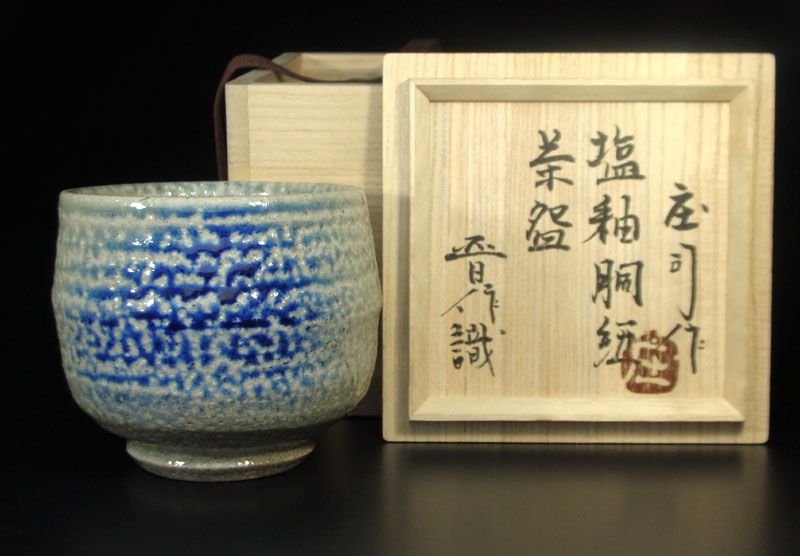 庄司作
塩釉胴紐
茶盌
晋作識